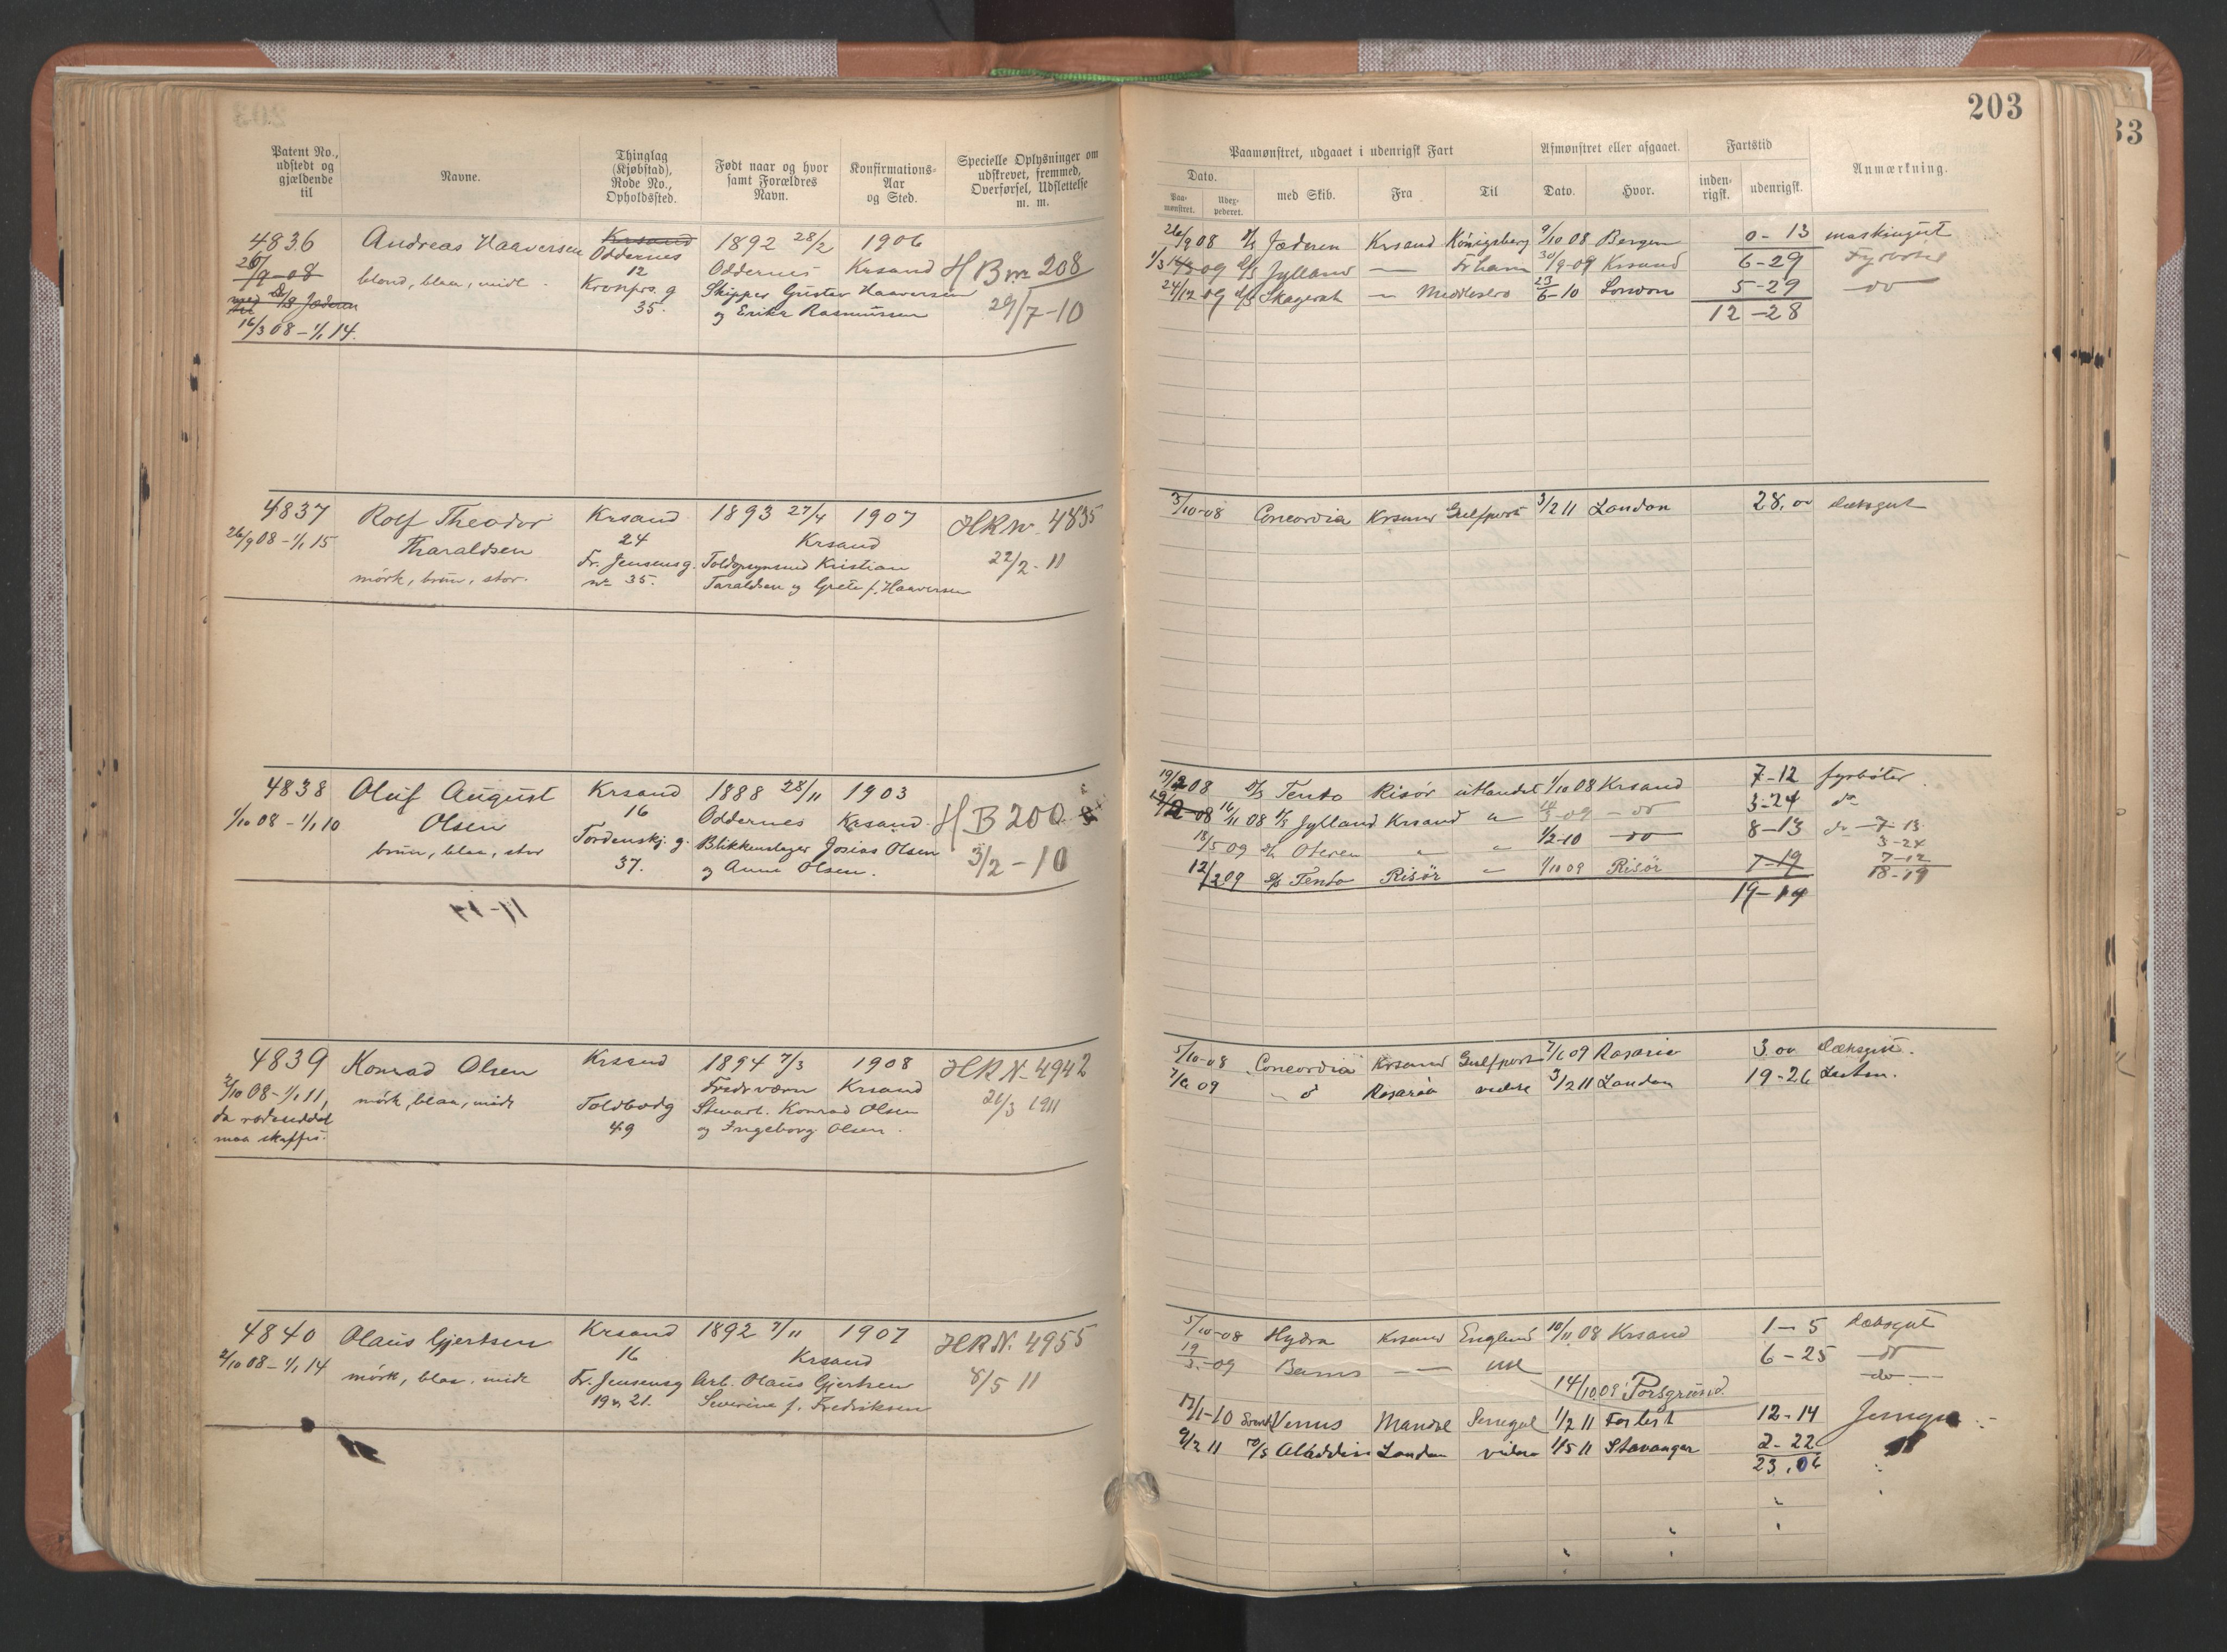 203
Patent No., udstedt og gjældende til
Navne.
Thinglag (Kjøbstad), Rode No., Opholdssted.
Født naar og hvor samt Forældres Navn.
Konfirmations-Aar og Sted.
Specielle Oplysninger om udskrevet, fremmed, Overførsel, Udslettelse m. m.
Paamønstret, udgaaet i udenrigsk Fart
Afmønstret eller afgaaet.
Fartstid
Anmærkning.
Dato.
Paamønstret.
Udexpederet.
med Skib.
Fra
Til
Dato.
Hvor.
indenrigsk.
udenrigsk.
4836 Andreas Haaversen Krsand 1892 28/2 1906
Oddernes
26/9-08 blond, blaa, midl. 12 Oddernes Krsand HB nr 208
med D/S Jæderen Kronprs. g Skipper Gustav Haaversen
35. og Erika Rasmussen 29/7-10
16/3 08 - 1/1 14.
26/9 08 D/S Jæderen Krsand Königsberg 9/10 08 Bergen 0-13 maskingut
1/3 09 D/S Jylland — Frham 30/9-09 Krsand 6-29 Fyrbøter
24/12 09 D/S Skagerak — Middlesbro 23/6-10 London 5-29 do
12-28
4837 Rolf Theodor Krsand 1893 27/4 1907 HR nr. 4835
26/9 08 - 1/1 15 Tharaldsen 24 Krsand
mørk, brun, stor. Fr. Jensensg. Toldopsynsmd Kristian 22/2-11
nr 35. Taraldsen og Grete f. Haaversen
3/10-08 Concordia Krsand Gulfport 3/2 11 London 28,00 Dæksgut
4838 Oluf August Krsand 1888 28/11 1903
1/10 08 - 1/1 10 Olsen 16 Oddernes Krsand. HB 200
brun, blaa, stor Tordenskj. g. Blikkenslager Josias Olsen
37. og Anna Olsen. 3/2-10
11-14
19/2 08 D/S Tento Risør utlandet 1/10 08 Krsand 7-12 fyrbøter
16/11 08 D/S Jylland Krsand " 3-09 do 3-24 do
18/5 09 Oteren " " 1/2-10 do 8-13 do 7-13
3-24
12/2 09 D/S Tento Risør " 1/10 09 Risør 7-19 7-12
18-19
19-14
4839 Konrad Olsen Krsand 1894 7/3 1908 HR N. 4942
2/10 08 - 1/1 11, mørk, blaa, midl Fredrværn Krsand
da rodeseddel Toldbodg Stuart. Konrad Olsen 21/3 1911
maa skaffes. 49 og Ingeborg Olsen.
5/10-08 Concordia Krsand Gulfport 7/6 09 Rosario 3.00 Dæksgut.
7/6 09 " Rosario videre 3/2 11 London 19-26
4840 Olaus Gjertsen Krsand 1892 7/11 1907 HR N. 4955
2/10 08 - 1/1 14 16 Krsand
mørk, blaa. midl Fr. Jensensg Arb. Olaus Gjertsen 8/5 11
19 21. Severine f. Fredriksen
5/10-08 Hydra Krsand England 10/11 08 Krsand 1-5 Dæksgut
19/3-09 — utl 6-25 do
14/10 09 Porsgrund. do
12/1-10 Venus Mandal Senegal 1/2 11 12-14
9/2 11 Aladdin London videre 1/5 11 Stavanger 2-22
23.06